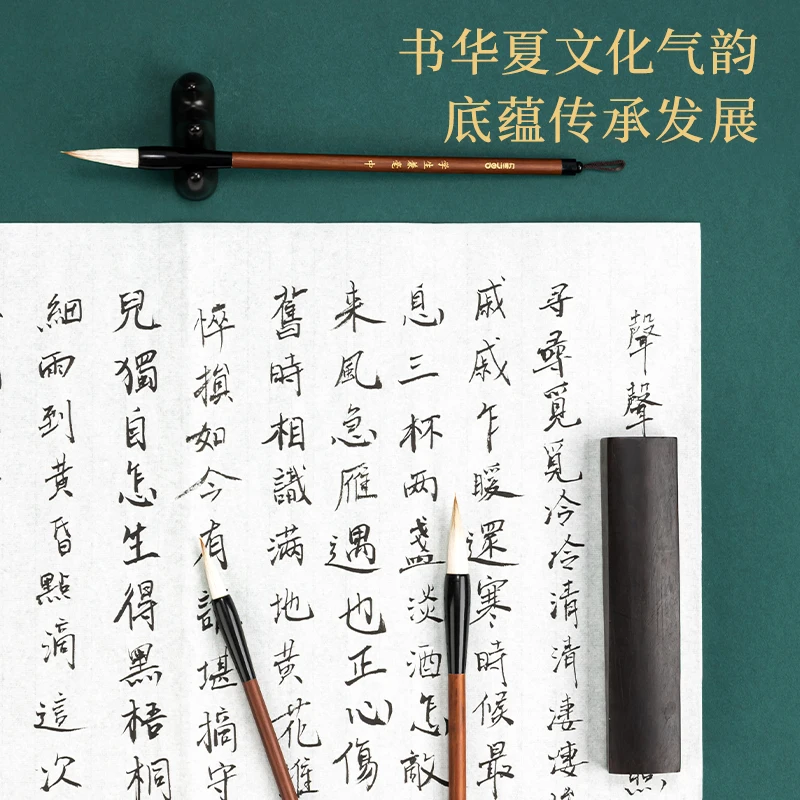 书华夏文化气韵
底蕴传承发展
学生兼毫 中
deli
聲聲
尋尋覓覓冷冷清清淒淒
戚戚乍暖還寒時候最
息三杯两盏淡酒怎敵
来風急雁過也正心傷
舊時相識滿地黄花堆
悴損如今有堪摘守
兒獨自怎生得黑梧桐
細雨到黄昏點滴這次